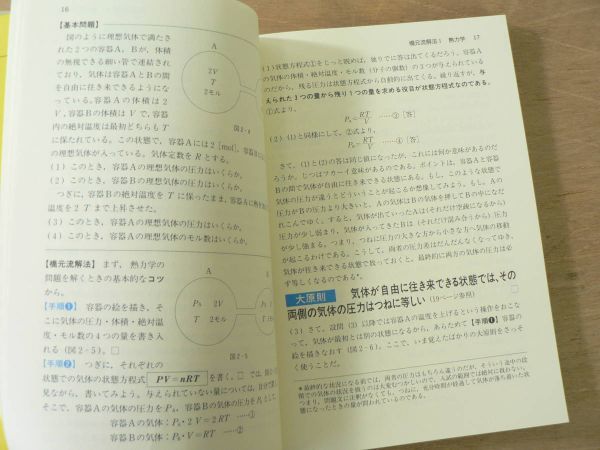 16
【基本問題】
図のように理想気体で満たさ
れた2つの容器A，Bが，体積
の無視できる細い管で連結され
ており，気体は容器AとBの間
を自由に行き来できるようにな
っている。容器Aの体積は2
V，容器Bの体積はVで，容器
内の絶対温度は最初どちらもT
に保たれている。この状態で，容器Aには2［mol］，容器B
の理想気体が入っている。気体定数をRとする。
(1) このとき，容器Aの理想気体の圧力はいくらか。
(2) このとき，容器Bの理想気体の圧力はいくらか。
つぎに，容器Bの絶対温度をTに保ったまま，容器A
温度を2Tまで上昇させた。
(3) このとき，容器Aの理想気体の圧力はいくらか。
(4) このとき，容器Aの理想気体のモル数はいくらか。
A
2V
T
2モル
図2-4
【橋元流解法】まず，熱力学の
問題を解くときの基本的なコツ
から。
【手順❶】 容器の絵を描き，そ
こに気体の圧力・体積・絶対温
度・モル数の4つの量を書き入
れる（図2-5）。□
【手順❷】 つぎに，それぞれの
状態での気体の状態方程式 PV=nRT を書く。□では，図
見ながら，書いてみよう。与えられていない量については，自分で
そこで，容器Aの気体の圧力をPA，容器Bの気体の圧力をPBとして，
容器Aの気体：PA・2V=2RT ……①
容器Bの気体：PB・V=RT ……②
A
PA 2V
T 2モル
図2-5
橋元流解法1 熱力学 17
(1) 状態方程式①をじっと眺めば，独りでに答は出てくるだろう。容器A
の気体の体積・絶対温度・モル数（分子の個数）の3つが与えられている
のだから，残る圧力は状態方程式から自動的に出てくる。繰り返すが，与
えられた3つの量から残り1つの量を求める役目が状態方程式なのである。
①式より，
PA=RT/V ……③ ［答］
(2) (1)と同様にして，②式より，
PB=RT/V ……④ ［答］
さて，(1)と(2)の答は同じ値になったが，これには何か意味があるのだ
ろうか。じつはフカーイ意味があるのである。ポイントは，容器Aと容器
Bの間で気体が自由に行き来できる状態にある。もし，このような状態で
気体の圧力が違うとどういうことが起こるか想像してみよう。もし，Aの
圧力がBの圧力より大きいと，Aの気体はBの気体を押してBの中になだ
れこんでゆく。すると，気体が出ていったAは（それだけ空疎になるから）
圧力が少し弱まり，気体が入ってきたBは（それだけ混み合うから）圧力
が少し強まる。つまり，つねに圧力の大きな方から小さな方へ気体の移動
が起こるわけである。こうして，両者の圧力差はだんだんなくなってゆき，
気体が行き来できる状態で放っておくと，最終的に両方の気体の圧力は必
ず等しくなってしまうのである。*
大原則 気体が自由に往き来できる状態では，その
両側の気体の圧力はつねに等しい （19ページ参照） □
(3) さて，設問(3)以降では容器Aの温度を上げるという操作をおこなっ
って，気体が最初とは別の状態になるから，あらためて【手順❶】の容器の
絵を描きなおす（図2-6）。ここで，いま覚えたばかりの大原則をさっそ
く使うことだ。